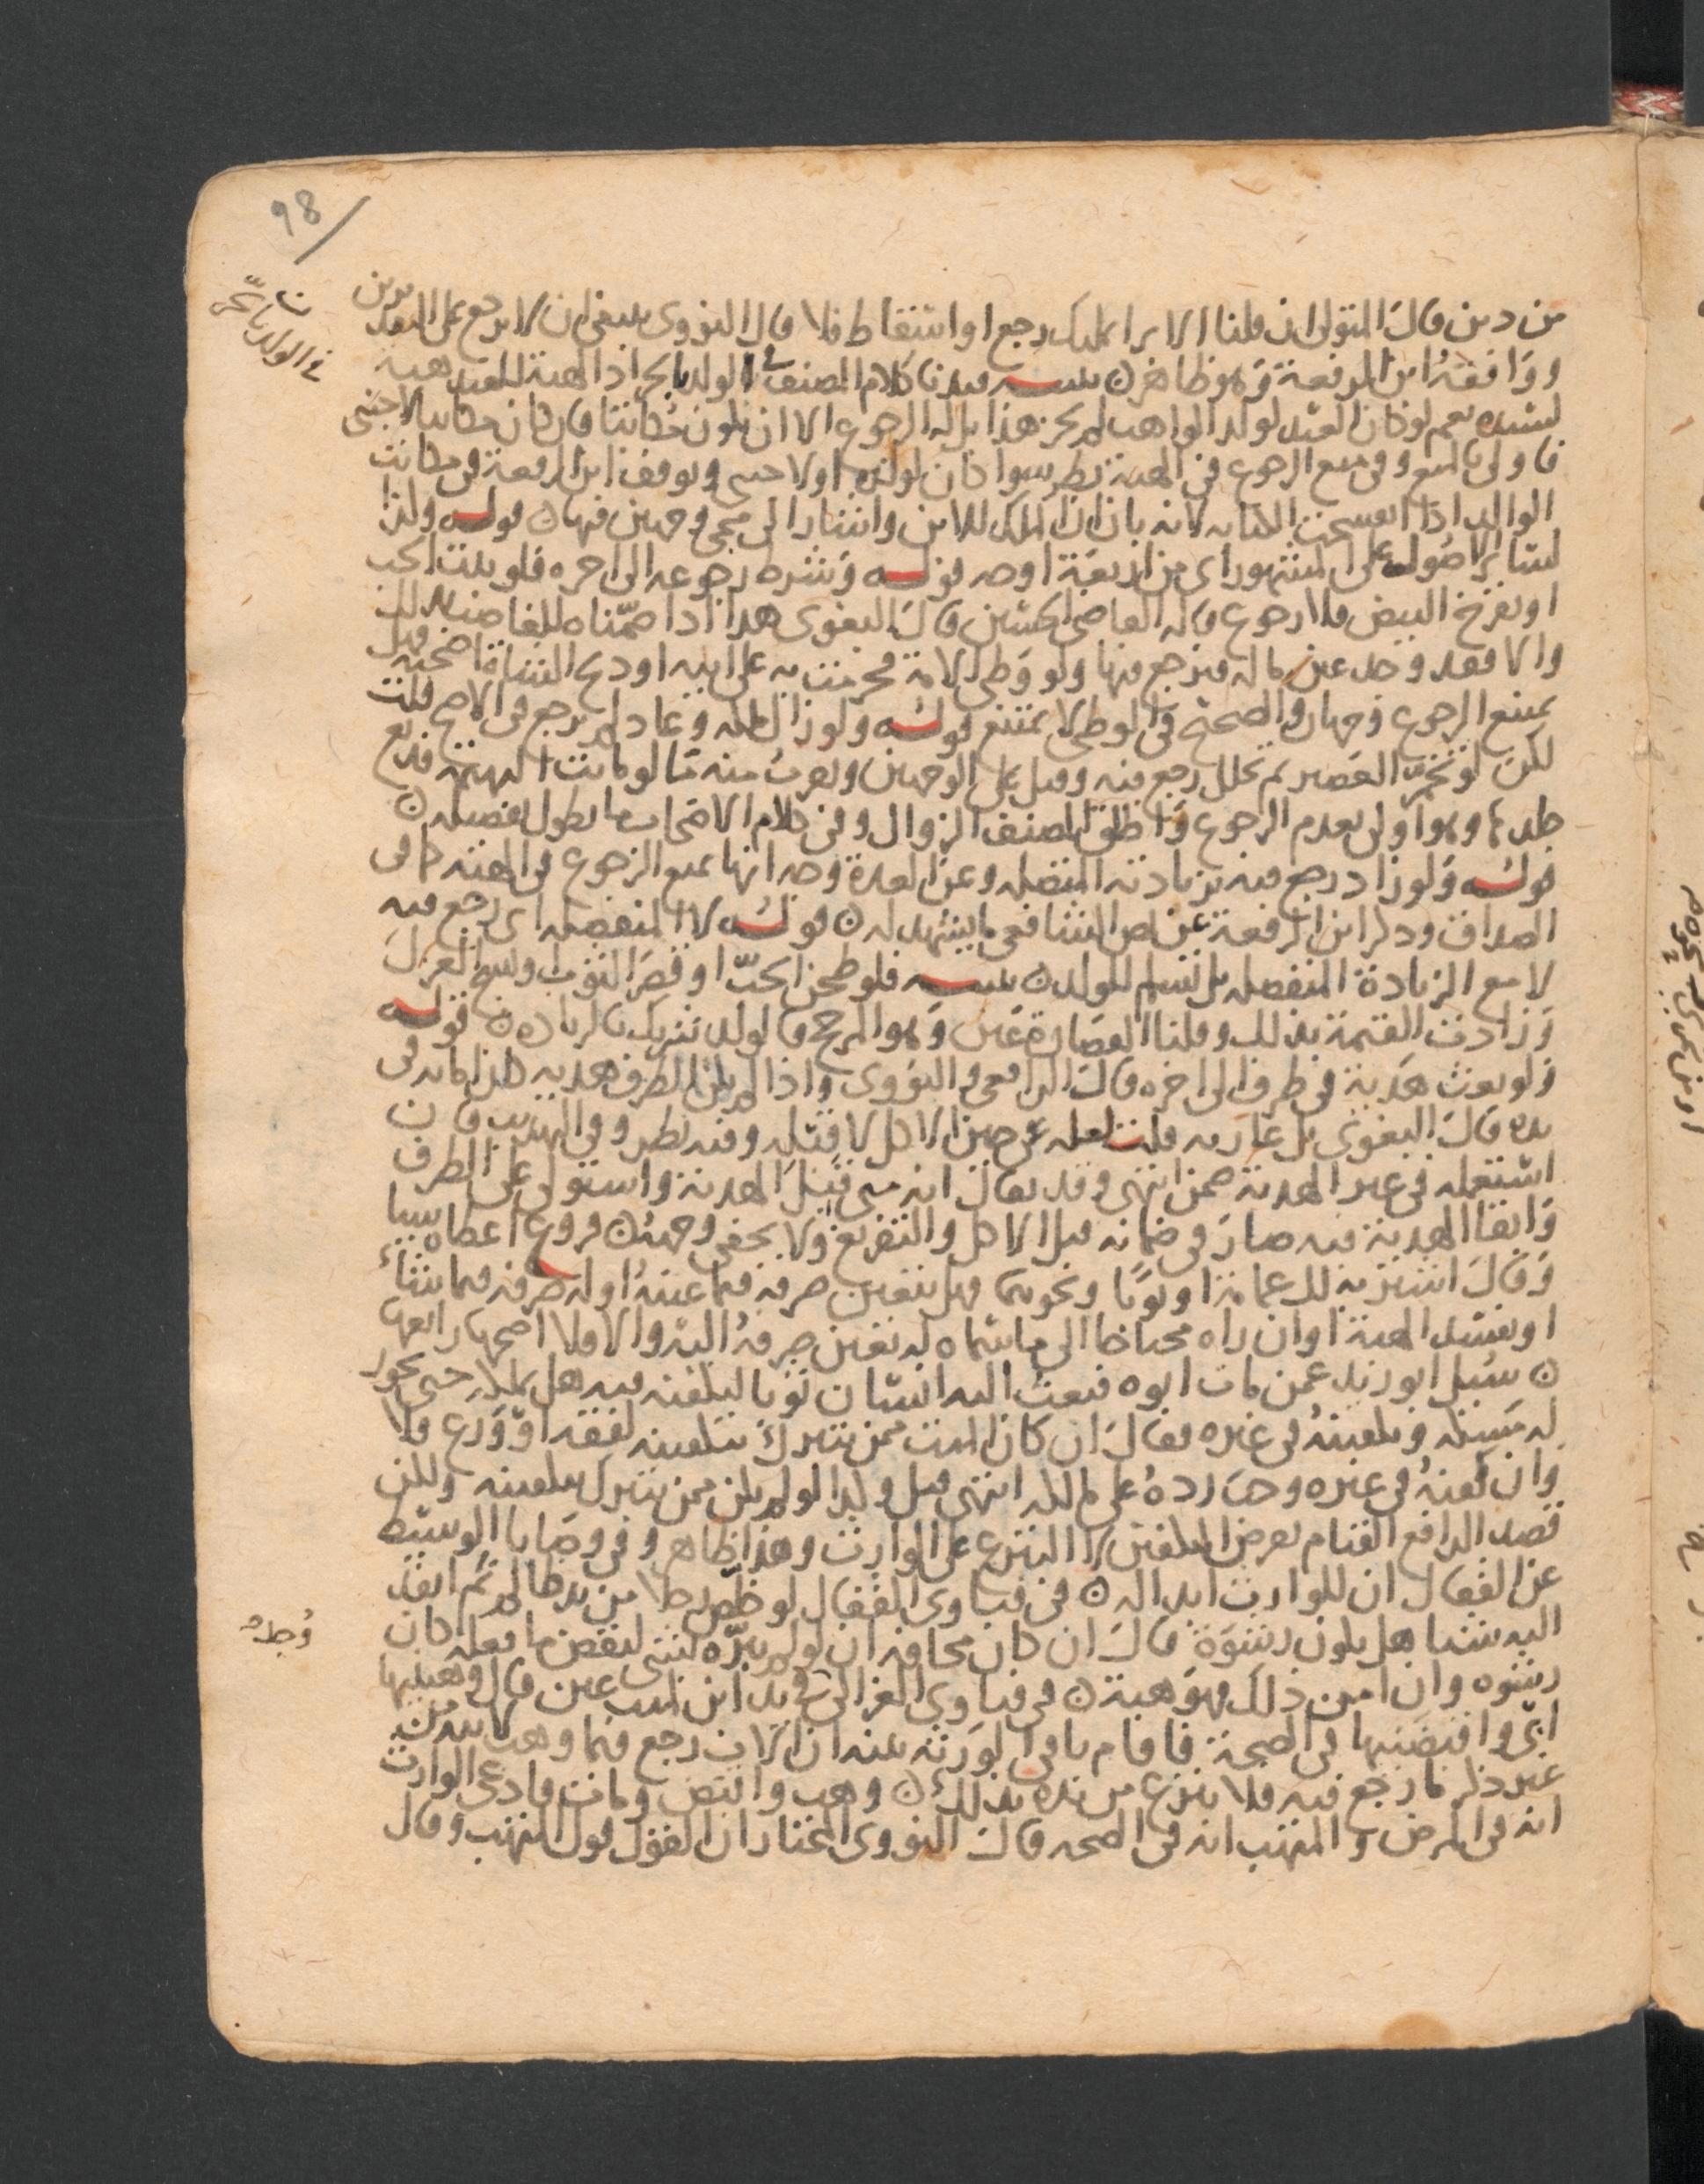 98
في الولد بالحر
من دين قال المتولي ان قلنا الابرا تمليك رجع او اسقاط فلا قال النووي ينبغي ان لا يرجع على التقديرين
ووافقه ابن الرفعة وهو ظاهر ن تنبيه قيدنا كلام المصنف في الولد بالحر اذ الهبة للعبد هبة
لسيده نعم لو كان العبد لولد الواهب لم يجز هذا بل له الرجوع الا ان يكون مكاتبا فان كان مكاتبا لاجنبي
فاولى بالمنع وفي منع الرجوع في الهبة نظر سوا كان لولده او لاجنبي وتوقف ابن الرفعة في مكاتب
الوالد اذا انفسخت الكتابة لانه بان ان الملك للابن واشار الى مجي وجهين فيها ن قوله وكذا
لسائر الاصول على المشهور اي من اربعة اوجه قوله وشرط رجوعه الى اخره فلو نبت الحب
او تفرخ البيض فلا رجوع قاله القاضي الحسين قال البغوي هذا اذا ضمناه للغاصب بذلك
والا فقد وجد عين ماله فيرجع فيها ولو وطى الامة فحرمت به على ابيه او ذبح الشاة اضحية قيل
يمتنع الرجوع وجهان والصحيح في الوطى لا يمتنع قوله ولو زال ملكه وعاد لم يرجع في الاصح قلت
لكن لو تخمر العصير ثم تخلل رجع فيه وقيل على الوجهين ويقرب منه ما لو ماتت البهيمة فدبغ
جلدها وهو اولى بعدم الرجوع واطلق المصنف الزوال وفي كلام الاصحاب ما يطول تفصيله ن
قوله ولو زاد رجع فيه بزيادته المتصلة وعن العدة وجه انها تمنع الرجوع في الهبة كما في
الصداق وذكر ابن الرفعة عن نص الشافعي ما يشهد له ن قوله لا المنفصلة اي رجع فيه
لا مع الزيادة المنفصلة بل تسلم للولد ن تنبيه فلو طحن الحب او قصر الثوب او نسج الغزل
وزادت القيمة بذلك وقلنا القصارة عين وهو المرجح فالولد شريك بالزيادة ن قوله
ولو بعث هدية في ظرف الى اخره قال الرافعي والنووي واذا لم يكن الظرف هدية كان امانة في
يده قال البغوي بل عارية قلت لعله عن حين الاكل لا قبله وفيه نظر وفي المهذب فان
استعمله في غير الهدية ضمن انتهى وقد يقال انه متى قبل الهدية واستولى على الظرف
وابقا الهدية فيه صار في ضمانه قبل الاكل والتفريغ ولا يخفى وجهه ن فروع اعطاه شيا
وقال اشتر به لك عمامة او ثوبا ونحوهما فهل يتعين صرفه فيما عينه او له صرفه فيما يشاء
او يفسد الهبة او ان راه محتاجا الى ما سماه له تعين صرفه اليه والا فلا اصحها رابعها
ن سئل ابو زيد عمن مات ابوه فبعث اليه انسان ثوبا ليكفنه فيه هل يملكه حتى يجوز
له مسكه وتكفينه في غيره فقال ان كان الميت ممن يتبرك بتكفينه لفقه او ورع فلا
وان كفنه في غيره وجب رده على مالكه انتهى قيل وكذا لو لم يكن ممن يتبرك بتكفينه ولكن
قصد الدافع القيام بفرض التكفين لا التبرع على الوارث وهذا ظاهر وفي وصايا الوسيط
عن القفال ان للوارث ابداله ن في فتاوى القفال لو خلص رجلا من يد ظالم ثم انفذ
وجد ه
اليه شيا هل يكون رشوة قال ان كان مخافة ان لو لم يبره لسعى لنقض ما فعله كان
رشوة وان امن ذلك فهو هبة ن في فتاوى الغزالي في يد ابن الميت عين قال وهبنيها
ابي واقبضنيها في الصحة فاقام باقي الورثة بينه ان الاب رجع فيما وهب لابنه
غير ذكر ما رجع فيه فلا ينزع من يده بذلك ن وهب واقبض ومات فادعى الوارث
انه في المرض والمتهب انه في الصحة قال النووي المختار ان القول قول المتهب وقال